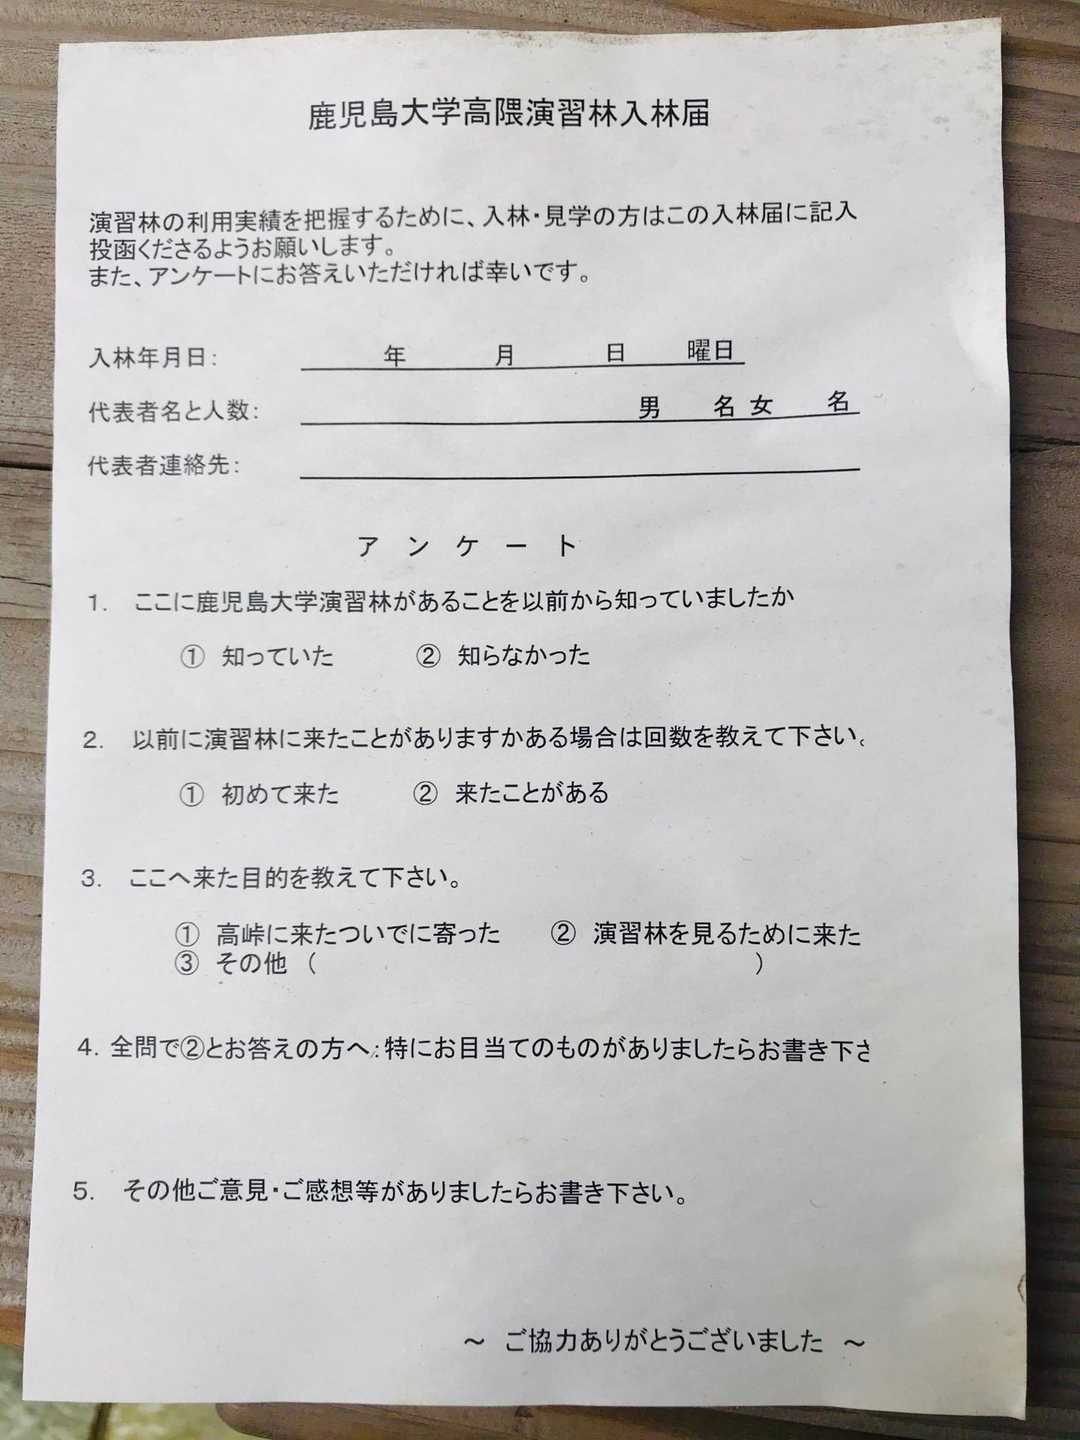 鹿児島大学高隈演習林入林届
演習林の利用実績を把握するために、入林・見学の方はこの入林届に記入
投函くださるようお願いします。
また、アンケートにお答えいただければ幸いです。
入林年月日： 年 月 日 曜日
代表者名と人数： 男 名 女 名
代表者連絡先：
アンケート
1. ここに鹿児島大学演習林があることを以前から知っていましたか
① 知っていた ② 知らなかった
2. 以前に演習林に来たことがありますかある場合は回数を教えて下さい。
① 初めて来た ② 来たことがある
3. ここへ来た目的を教えて下さい。
① 高峠に来たついでに寄った ② 演習林を見るために来た
③ その他 （ ）
4. 全問で②とお答えの方へ：特にお目当てのものがありましたらお書き下さ
5. その他ご意見・ご感想等がありましたらお書き下さい。
～ ご協力ありがとうございました ～